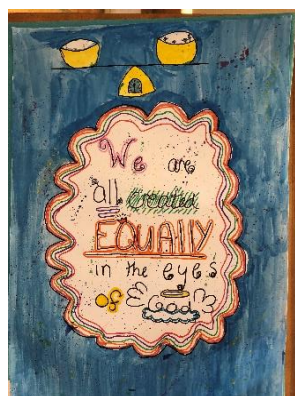 We are
all Created
EQUALLY
in the eyes
of God